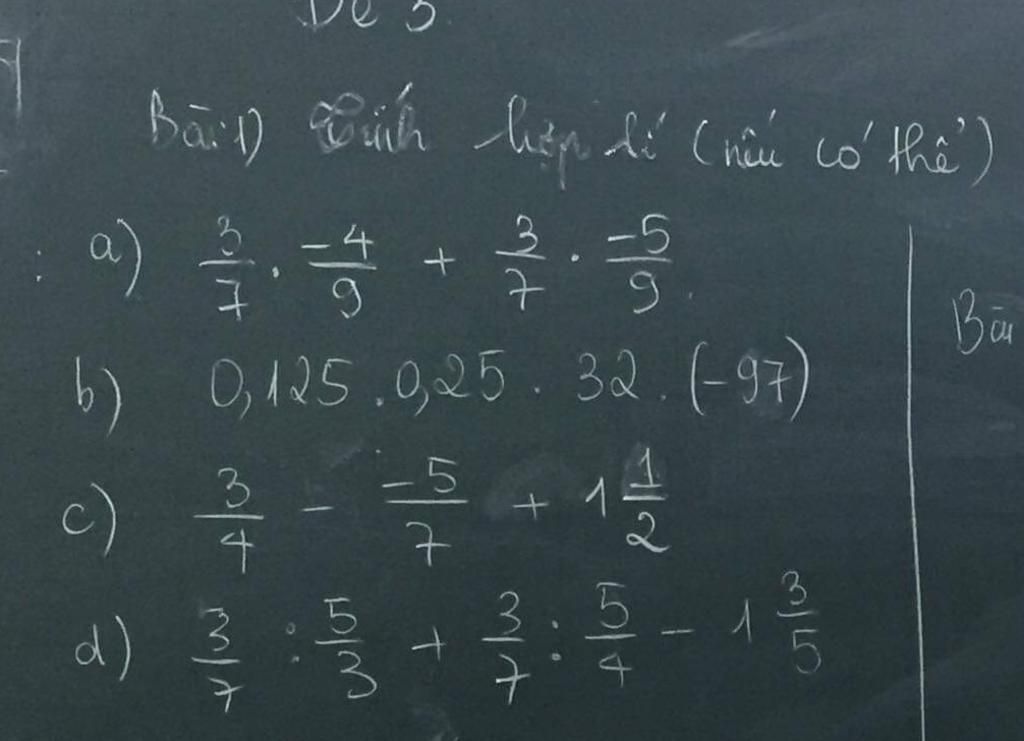 Đề 3
Bài 1) Tính hợp lí (nếu có thể)
a) 3/7 . -4/9 + 3/7 . -5/9
b) 0,125 . 0,25 . 32 . (-97)
Bài
c) 3/4 - -5/7 + 1 1/2
d) 3/7 : 5/3 + 3/7 : 5/4 - 1 3/5